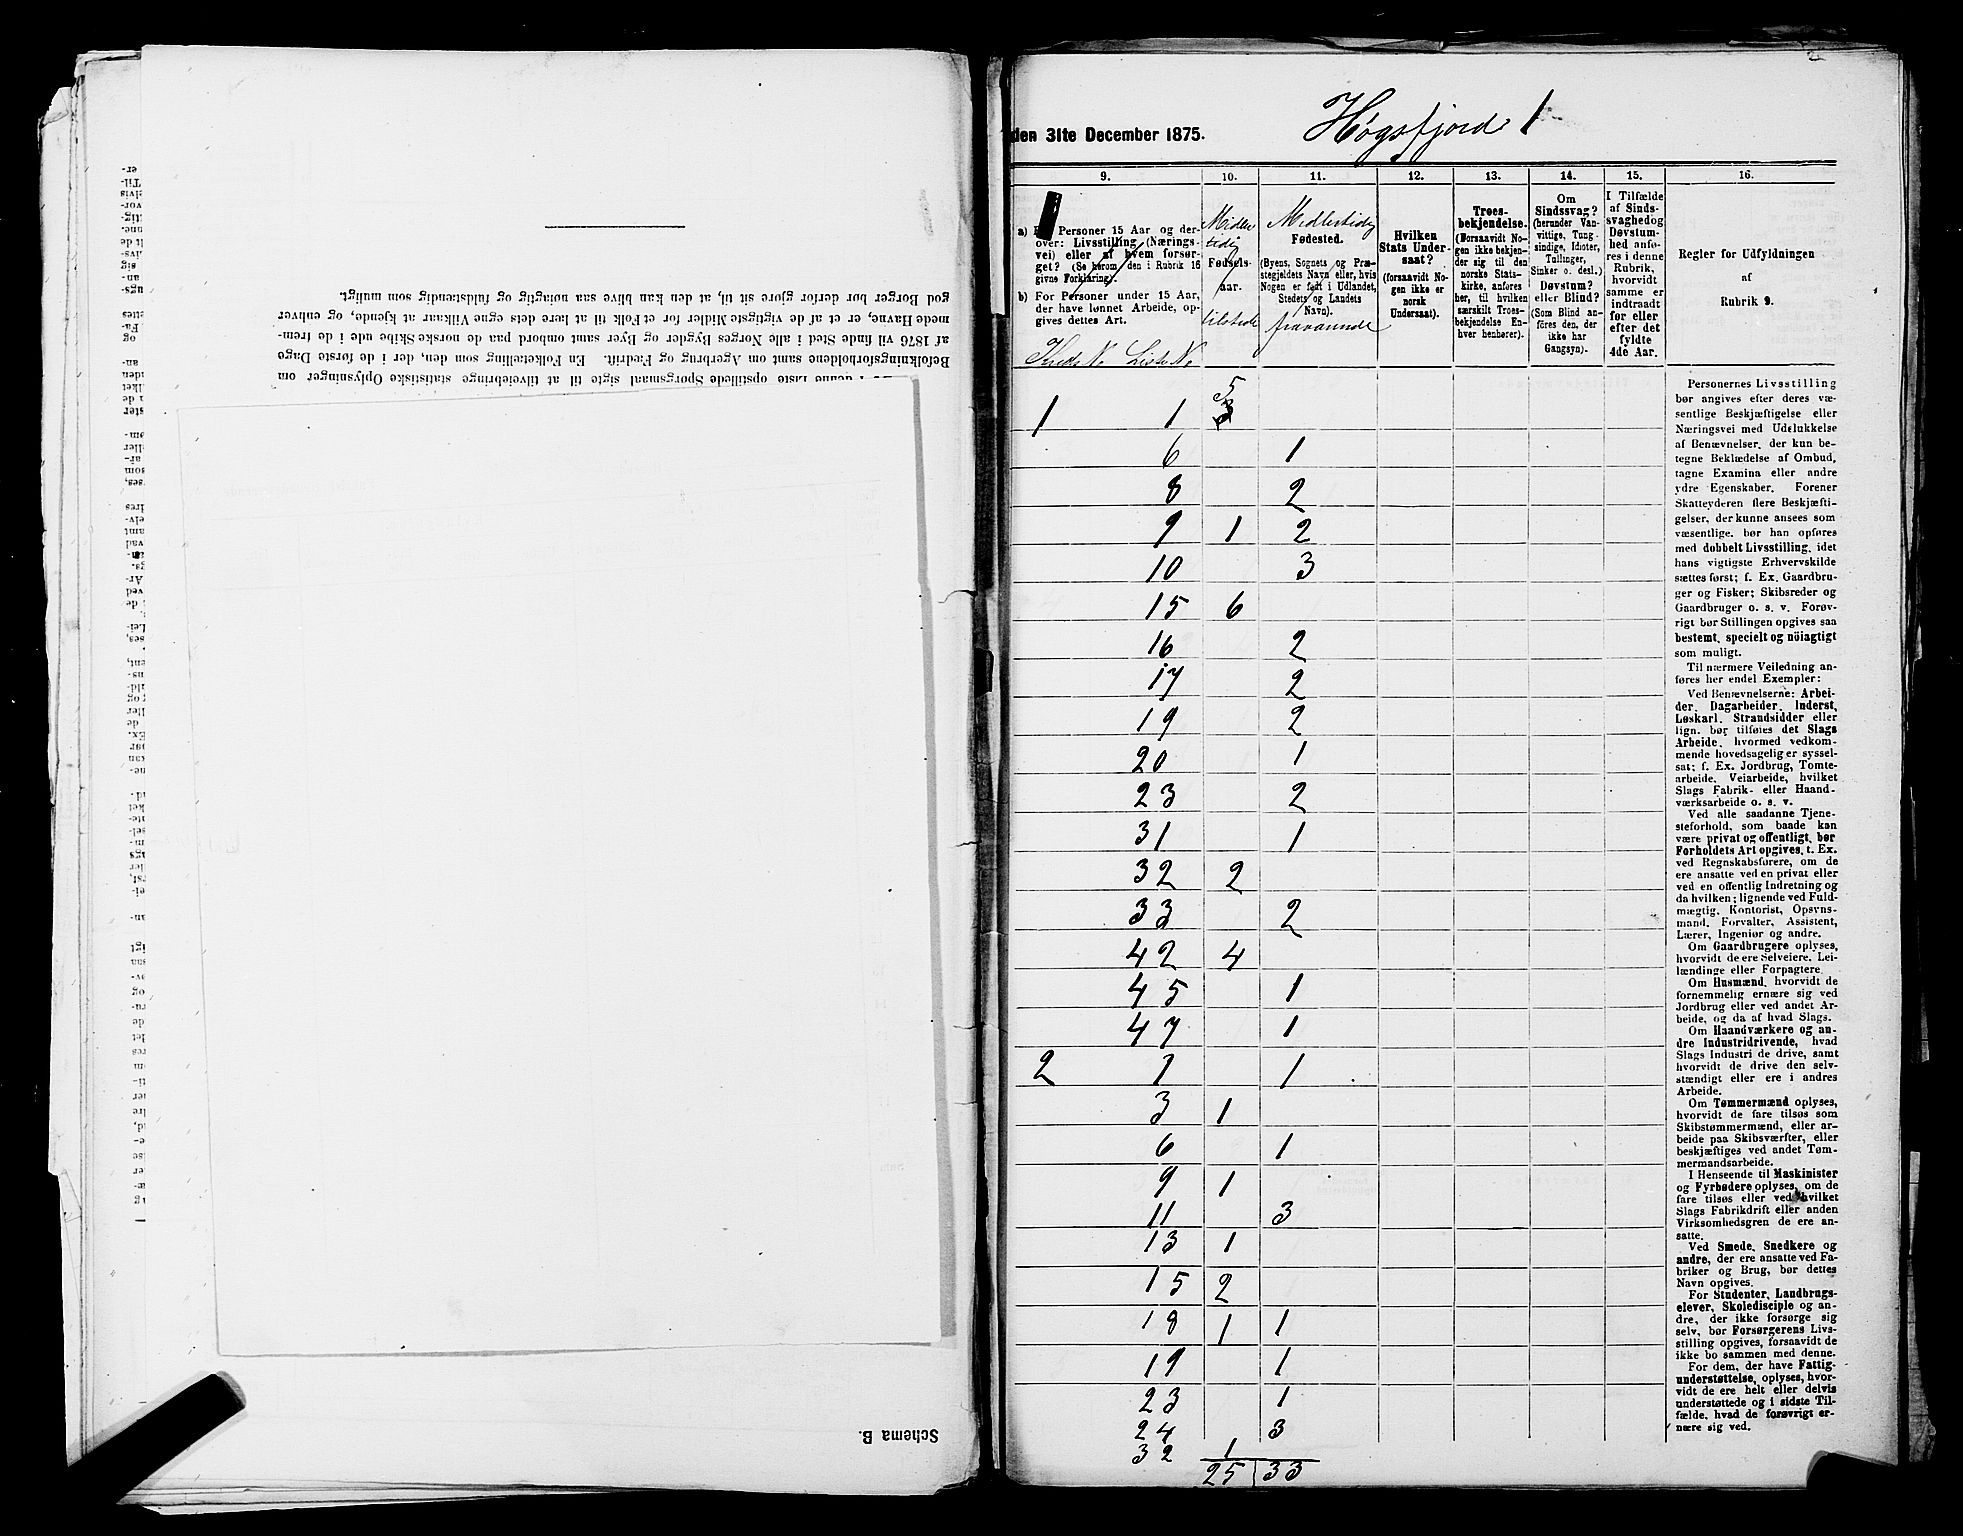 Schema B.
Befolkningsforholdene samt om Agerbrug og Fædrift. En Folketælling som den, der i de første Dage
af 1876 vil finde Sted i alle Norges Bygder og Byer samt ombord paa de norske Skibe ude i de frem-
mede Havne, er et af de vigtigste Midler for et Folk til at lære dets egne Vilkaar at kjende, og enhver
god Borger bør derfor gjøre sit til, at den kan blive saa nøiagtig og fuldstændig som muligt.
den 31te December 1875.
Høgsfjord 1
9. 10. 11. 12. 13. 14. 15. 16.
a) For Personer 15 Aar og der-
over: Livsstilling (Nærings-
vei) eller af hvem forsør-
get? (Se herom den i Rubrik 16
givne Forklaring).
b) For Personer under 15 Aar,
der have lønnet Arbeide, op-
gives dettes Art.
Kreds No Liste No
Midler
tidig
Fødsels-
aar.
tilstede
Midlertidig
Fødested.
(Byens, Sognets og Præ-
stegjeldets Navn eller, hvis
Nogen er født i Udlandet,
Stedets og Landets
Navn).
fraværende
Hvilken
Stats Under-
saat?
(forsaavidt No-
gen ikke er
norsk
Undersaat).
Troes-
bekjendelse.
(Forsaavidt No-
gen ikke bekjen-
der sig til den
norske Stats-
kirke, anføres
her, til hvilken
særskilt Troes-
bekjendelse En-
hver henhører).
Om
Sindssvag?
(herunder Van-
vittige, Tung-
sindige, Idioter,
Tullinger,
Sinker o. desl.)
Døvstum?
eller Blind?
(Som Blind an-
føres den, der
ikke har
Gangsyn).
I Tilfælde
af Sinds-
svaghed og
Døvstum-
hed anfø-
res i denne
Rubrik,
hvorvidt
samme er
indtraadt
før eller
efter det
fyldte
4de Aar.
Regler for Udfyldningen
af
Rubrik 9.
5
1 1 3
6 1
8 2
9 1 2
10 3
15 6
16 2
17 2
19 2
20 1
23 2
31 1
32 2
33 2
42 4
45 1
47 1
2 1 1
3 1
6 1
9 1
11 3
13 1
15 2
18 1 1
19 1
23 1
24 3
32 1
25 33
Personernes Livsstilling
bør angives efter deres væ-
sentlige Beskjæftigelse eller
Næringsvei med Udelukkelse
af Benævnelser, der kun be-
tegne Beklædelse af Ombud,
tagne Examina eller andre
ydre Egenskaber. Forener
Skatteyderen flere Beskjæfti-
gelser, der kunne ansees som
væsentlige, bør han opføres
med dobbelt Livsstilling, idet
hans vigtigste Erhvervskilde
sættes først; f. Ex. Gaardbru-
ger og Fisker; Skibsreder og
Gaardbruger o. s. v. Forøv-
rigt bør Stillingen opgives saa
bestemt, specielt og nöiagtigt
som muligt.
Til nærmere Veiledning an-
føres her endel Exempler:
Ved Benævnelserne: Arbei-
der, Dagarbeider, Inderst,
Løskarl, Strandsidder eller
lign. bør tilføies det Slags
Arbeide, hvormed vedkom-
mende hovedsagelig er syssel-
sat; f. Ex. Jordbrug, Tomte-
arbeide, Veiarbeide, hvilket
Slags Fabrik- eller Haand-
værksarbeide o. s. v.
Ved alle saadanne Tjene-
steforhold, som baade kan
være privat og offentligt, bør
Forholdets Art opgives, t. Ex.
ved Regnskabsførere, om de
ere ansatte ved en privat eller
ved en offentlig Indretning og
da hvilken; lignende ved Fuld-
mægtig, Kontorist, Opsyns-
mand, Forvalter, Assistent,
Lærer, Ingeniør og andre.
Om Gaardbrugere oplyses,
hvorvidt de ere Selveiere, Lei-
lændinge eller Forpagtere.
Om Husmænd, hvorvidt de
fornemmelig ernære sig ved
Jordbrug eller ved andet Ar-
beide, og da af hvad Slags.
Om Haandværkere og an-
dre Industridrivende, hvad
Slags Industri de drive, samt
hvorvidt de drive den selv-
stændigt eller ere i andres
Arbeide.
Om Tømmermænd oplyses,
hvorvidt de fare tilsøs som
Skibstømmermænd, eller ar-
beide paa Skibsværfter, eller
beskjæftiges ved andet Tøm-
mermandsarbeide.
I Henseende til Maskinister
og Fyrbødere oplyses, om de
fare tilsøs eller ved hvilket
Slags Fabrikdrift eller anden
Virksomhedsgren de ere an-
satte.
Ved Smede, Snedkere og
andre, der ere ansatte ved Fa-
briker og Brug, bør dettes
Navn opgives.
For Studenter, Landbrugs-
elever, Skoledisciple og an-
dre, der ikke forsørge sig
selv, bør Forsørgerens Livs-
stilling opgives, forsaavidt de
ikke bo sammen med denne.
For dem, der have Fattig-
understøttelse, oplyses, hvor-
vidt de ere helt eller delvis
understøttede og i sidste Til-
fælde, hvad de forøvrigt er-
nære sig ved.